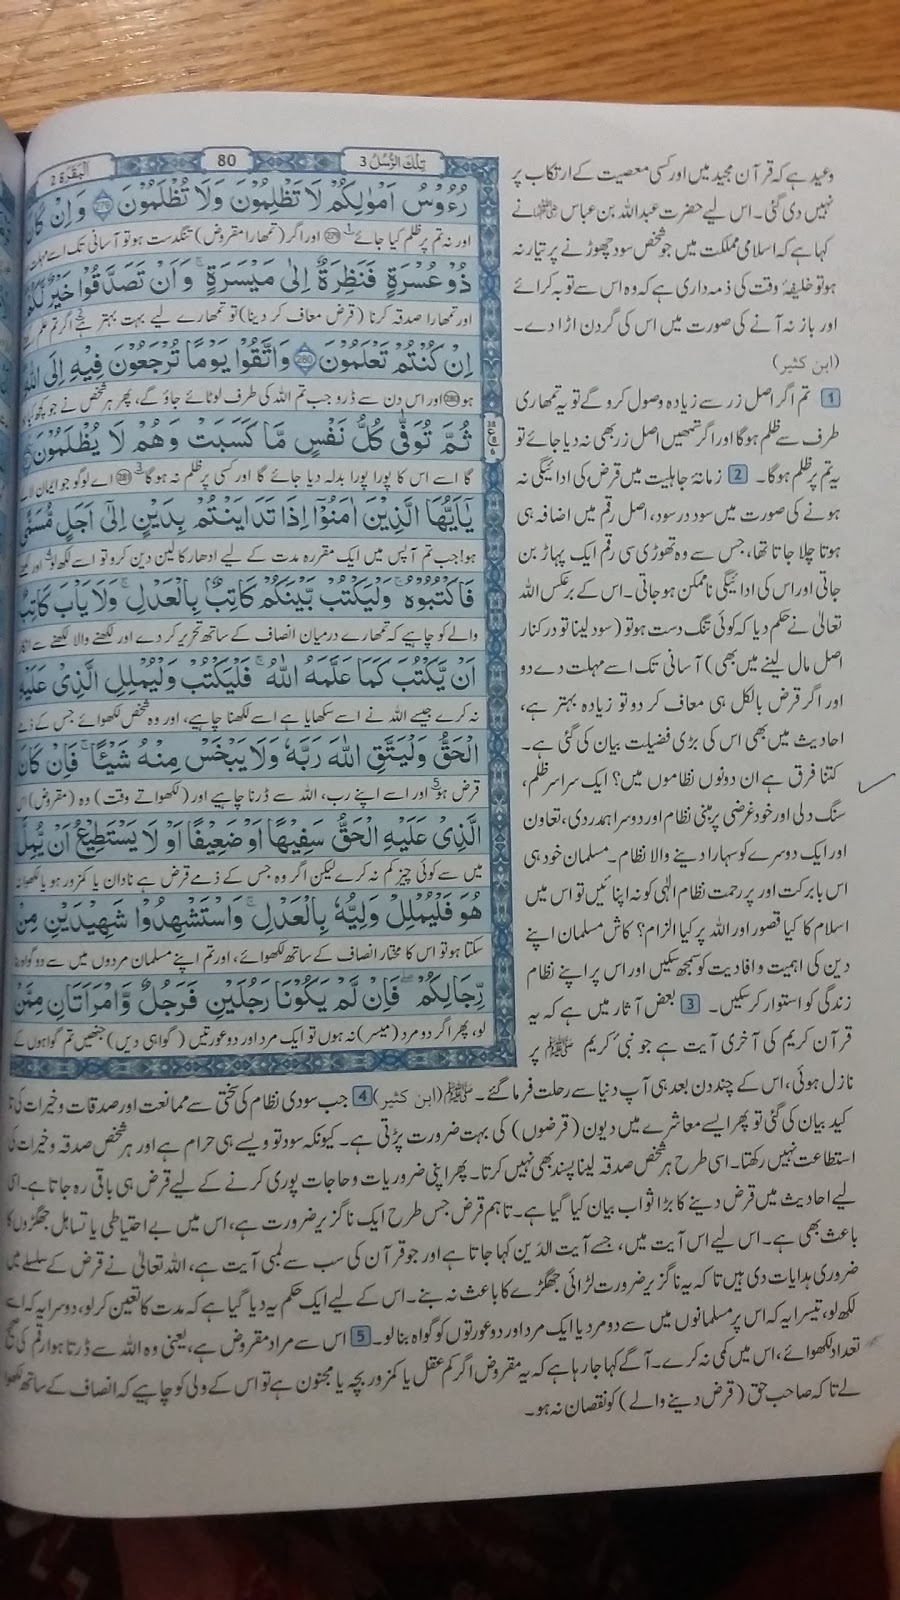 اَلْبَقَرَة 2
80
تِلْكَ الرُّسُلُ 3
رُءُوْسُ اَمْوَالِكُمْ لَا تَظْلِمُوْنَ وَلَا تُظْلَمُوْنَ 279 وَاِنْ كَانَ
اور نہ تم پر ظلم کیا جائے 1 279 اور اگر (تمھارا مقروض) تنگدست ہو تو آسانی تک اسے مہلت
ذُوْ عُسْرَةٍ فَنَظِرَةٌ اِلٰى مَيْسَرَةٍ ۚ وَاَنْ تَصَدَّقُوْا خَيْرٌ لَّكُمْ
اور تمھارا صدقہ کرنا (قرض معاف کر دینا) تو تمھارے لیے بہت بہتر ہے 2 اگر تم علم
اِنْ كُنْتُمْ تَعْلَمُوْنَ 280 وَاتَّقُوْا يَوْمًا تُرْجَعُوْنَ فِيْهِ اِلَى اللّٰهِ
ہو 280 اور اس دن سے ڈرو جب تم اللہ کی طرف لوٹائے جاؤ گے، پھر ہر شخص نے جو کچھ
ثُمَّ تُوَفّٰى كُلُّ نَفْسٍ مَّا كَسَبَتْ وَهُمْ لَا يُظْلَمُوْنَ
گا اسے اس کا پورا پورا بدلہ دیا جائے گا اور کسی پر ظلم نہ ہوگا 3 281 اے لوگو جو ایمان
يٰٓاَيُّهَا الَّذِيْنَ اٰمَنُوْٓا اِذَا تَدَايَنْتُمْ بِدَيْنٍ اِلٰٓى اَجَلٍ مُّسَمًّى
ہو! جب تم آپس میں ایک مقررہ مدت کے لیے ادھار کا لین دین کرو تو اسے لکھ لو 4 اور
فَاكْتُبُوْهُ ۭ وَلْيَكْتُبْ بَّيْنَكُمْ كَاتِبٌۢ بِالْعَدْلِ ۠ وَلَا يَاْبَ كَاتِبٌ
والے کو چاہیے کہ تمھارے درمیان انصاف کے ساتھ تحریر کر دے اور لکھنے والا لکھنے سے
اَنْ يَّكْتُبَ كَمَا عَلَّمَهُ اللّٰهُ ۚ فَلْيَكْتُبْ وَلْيُمْلِلِ الَّذِيْ عَلَيْهِ
نہ کرے جیسے اللہ نے اسے سکھایا ہے اسے لکھنا چاہیے، اور وہ شخص لکھوائے جس کے ذمے
الْحَقُّ وَلْيَتَّقِ اللّٰهَ رَبَّهٗ وَلَا يَبْخَسْ مِنْهُ شَيْئًا ۭ فَاِنْ كَانَ
قرض ہو 5 اور اسے اپنے رب، اللہ سے ڈرنا چاہیے اور (لکھواتے وقت) وہ (مقروض) اس
الَّذِيْ عَلَيْهِ الْحَقُّ سَفِيْهًا اَوْ ضَعِيْفًا اَوْ لَا يَسْتَطِيْعُ اَنْ يُّمِلَّ
میں سے کوئی چیز کم نہ کرے لیکن اگر وہ جس کے ذمے قرض ہے نادان یا کمزور ہو یا لکھوا نہ
هُوَ فَلْيُمْلِلْ وَلِيُّهٗ بِالْعَدْلِ ۭ وَاسْتَشْهِدُوْا شَهِيْدَيْنِ مِنْ
سکتا ہو تو اس کا مختار انصاف کے ساتھ لکھوائے، اور تم اپنے مسلمان مردوں میں سے دو گواہ
رِّجَالِكُمْ ۚ فَاِنْ لَّمْ يَكُوْنَا رَجُلَيْنِ فَرَجُلٌ وَّامْرَاَتٰنِ مِمَّنْ
لو، پھر اگر دو مرد (میسر) نہ ہوں تو ایک مرد اور دو عورتیں (گواہی دیں) جنھیں تم گواہوں کے
وعید ہے کہ قرآن مجید میں اور کسی معصیت کے ارتکاب پر
نہیں دی گئی۔ اس لیے حضرت عبداللہ بن عباس نے
کہا ہے کہ اسلامی مملکت میں جو شخص سود چھوڑنے پر تیار نہ
ہو تو خلیفۂ وقت کی ذمہ داری ہے کہ وہ اس سے توبہ کرائے
اور باز نہ آنے کی صورت میں اس کی گردن اڑا دے۔
(ابن کثیر)
1 تم اگر اصل زر سے زیادہ وصول کرو گے تو یہ تمھاری
طرف سے ظلم ہوگا اور اگر تمھیں اصل زر بھی نہ دیا جائے تو
یہ تم پر ظلم ہوگا۔ 2 زمانۂ جاہلیت میں قرض کی ادائیگی نہ
ہونے کی صورت میں سود در سود، اصل رقم میں اضافہ ہی
ہوتا چلا جاتا تھا، جس سے وہ تھوڑی سی رقم ایک پہاڑ بن
جاتی اور اس کی ادائیگی ناممکن ہو جاتی۔ اس کے برعکس اللہ
تعالیٰ نے حکم دیا کہ کوئی تنگ دست ہو تو (سود لینا تو درکنار
اصل مال لینے میں بھی) آسانی تک اسے مہلت دے دو
اور اگر قرض بالکل ہی معاف کر دو تو زیادہ بہتر ہے،
احادیث میں بھی اس کی بڑی فضیلت بیان کی گئی ہے۔
کتنا فرق ہے ان دونوں نظاموں میں؟ ایک سراسر ظلم،
سنگ دلی اور خود غرضی پر مبنی نظام اور دوسرا ہمدردی، تعاون
اور ایک دوسرے کو سہارا دینے والا نظام۔ مسلمان خود ہی
اس بابرکت اور پر رحمت نظام الٰہی کو نہ اپنائیں تو اس میں
اسلام کا کیا قصور اور اللہ پر کیا الزام؟ کاش مسلمان اپنے
دین کی اہمیت و افادیت کو سمجھ سکیں اور اس پر اپنے نظام
زندگی کو استوار کر سکیں۔ 3 بعض آثار میں ہے کہ یہ
قرآن کریم کی آخری آیت ہے جو نبی کریم ﷺ پر
نازل ہوئی، اس کے چند دن بعد ہی آپ دنیا سے رحلت فرما گئے۔ ﷺ (ابن کثیر) 4 جب سودی نظام کی سختی سے ممانعت اور صدقات و خیرات کی تا
کید بیان کی گئی تو پھر ایسے معاشرے میں دیون (قرضوں) کی بہت ضرورت پڑتی ہے۔ کیونکہ سود تو ویسے ہی حرام ہے اور ہر شخص صدقہ و خیرات کی
استطاعت نہیں رکھتا۔ اسی طرح ہر شخص صدقہ لینا پسند بھی نہیں کرتا۔ پھر اپنی ضروریات و حاجات پوری کرنے کے لیے قرض ہی باقی رہ جاتا ہے۔ اسی
لیے احادیث میں قرض دینے کا بڑا ثواب بیان کیا گیا ہے۔ تاہم قرض جس طرح ایک ناگزیر ضرورت ہے، اس میں بے احتیاطی یا تساہل جھگڑوں کا
باعث بھی ہے۔ اس لیے اس آیت میں، جسے آیت الدَّین کہا جاتا ہے اور جو قرآن کی سب سے لمبی آیت ہے، اللہ تعالیٰ نے قرض کے سلسلے میں
ضروری ہدایات دی ہیں تا کہ یہ ناگزیر ضرورت لڑائی جھگڑے کا باعث نہ بنے۔ اس کے لیے ایک حکم یہ دیا گیا ہے کہ مدت کا تعین کر لو، دوسرا یہ کہ اسے
لکھ لو، تیسرا یہ کہ اس پر مسلمانوں میں سے دو مرد یا ایک مرد اور دو عورتوں کو گواہ بنا لو۔ 5 اس سے مراد مقروض ہے، یعنی وہ اللہ سے ڈرتا ہوا رقم کی صحیح
تعداد لکھوائے، اس میں کمی نہ کرے۔ آگے کہا جا رہا ہے کہ یہ مقروض اگر کم عقل یا کمزور بچہ یا مجنون ہے تو اس کے ولی کو چاہیے کہ انصاف کے ساتھ لکھوا
لے تا کہ صاحب حق (قرض دینے والے) کو نقصان نہ ہو۔